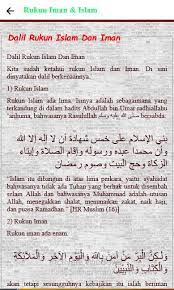 Rukun Iman & Islam
Dalil Rukun Islam Dan Iman
Dalil Rukun Islam Dan Iman
Kita sudah ketahui rukun Islam dan Iman. Di sini
dinyatakan dalil berkenaannya.
1) Rukun Islam
Rukun Islam ada lima. Ianya adalah sebagaimana yang
terkandung di dalam hadits Abdullah bin Umar radhiallahu
'anhuma, bahwasanya Rasulullah صلى الله عليه وسلم bersabda:
بني الإسلام على خمس شهادة أن لا إله إلا الله
وأن محمدا عبده ورسوله وإقام الصلاة وإيتاء
الزكاة وحج البيت وصوم رمضان
"Islam itu dibangun di atas lima perkara, yaitu syahadat
bahwasanya tidak ada Tuhan yang berhak untuk disembah
selain Allah dan bahwasanya Muhammad adalah utusan
Allah, menegakkan shalat, menunaikan zakat, naik haji,
dan puasa Ramadhan." [HR Muslim (16)]
2) Rukun Iman
Rukun iman ada enam.
وَلَٰكِنَّ الْبِرَّ مَنْ آمَنَ بِاللَّهِ وَالْيَوْمِ الْآخِرِ وَالْمَلَائِكَةِ
وَالْكِتَابِ وَالنَّبِيِّينَ
akan tetapi sesungguhnya kebajikan itu ialah beriman